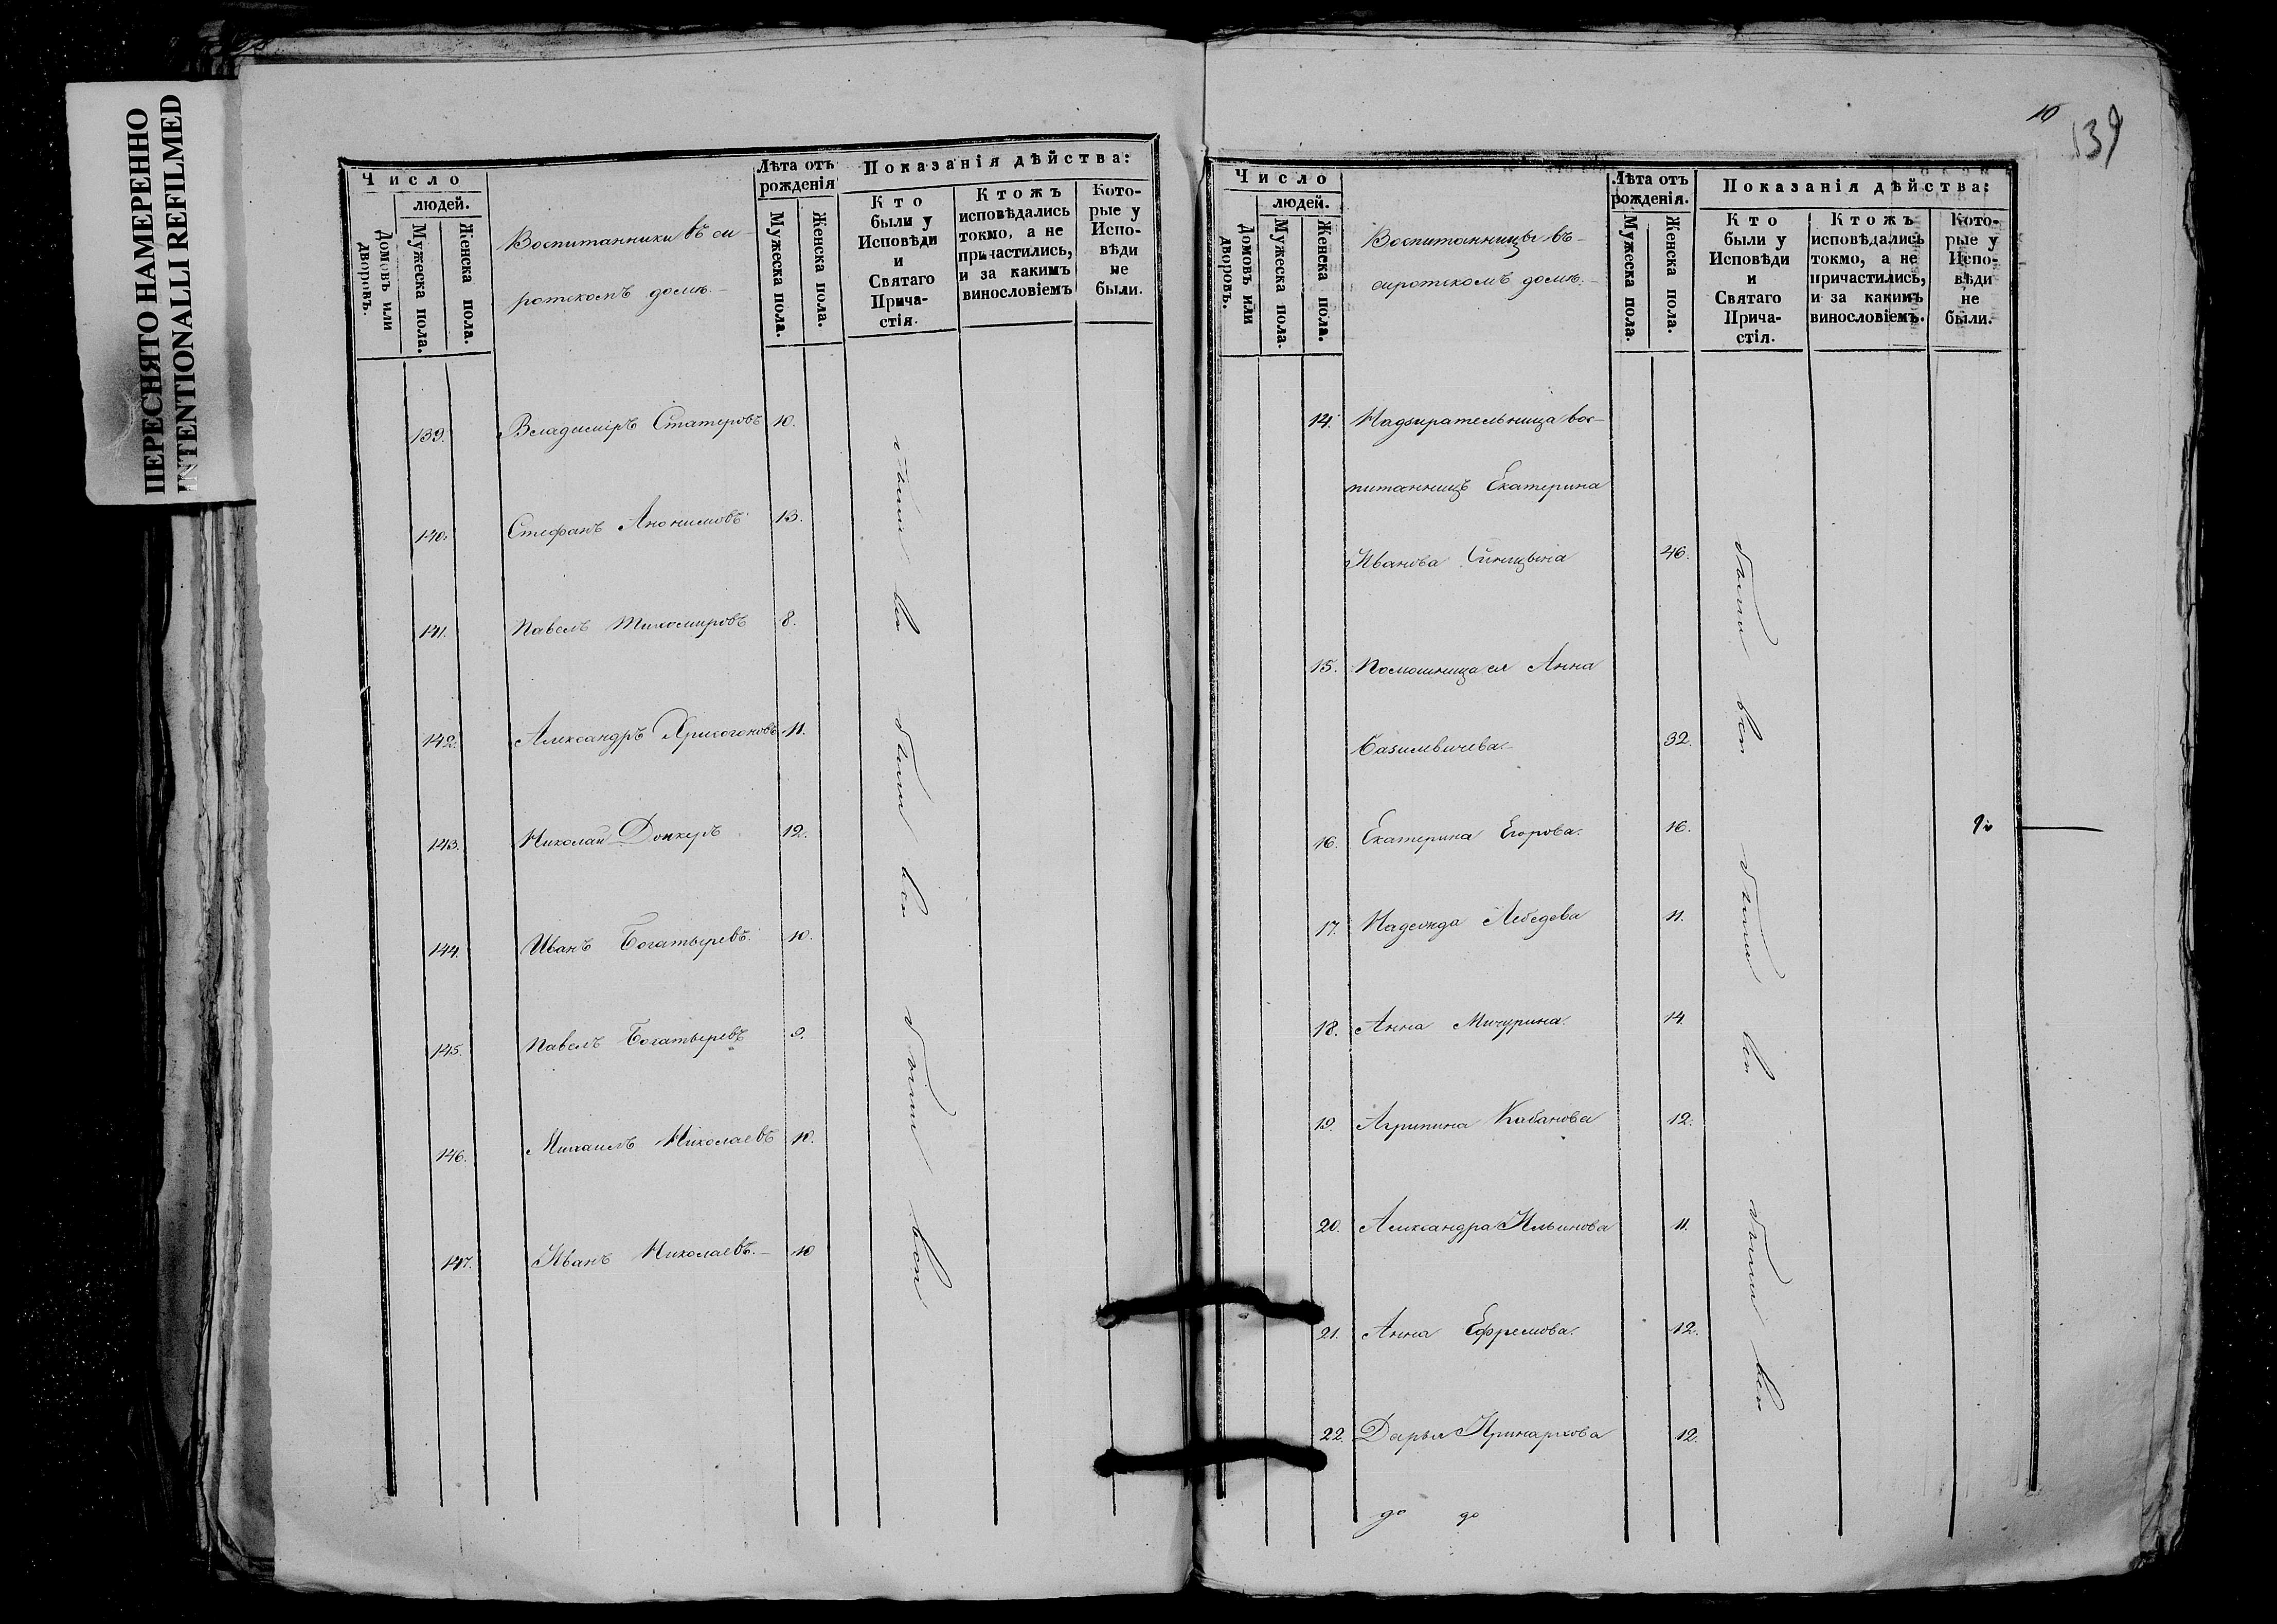 ПЕРЕСНЯТО НАМЕРЕННО
INTENTIONALLI REFILMED
Число
людей.
Домовъ или дворовъ.
Мужеска пола.
Женска пола.
Воспитанники въ си-
ротскомъ домѣ.-
Лѣта отъ
рожденія
Мужеска пола.
Женска пола.
Показанія дѣйства:
Кто
были у
Исповѣди
и
Святаго
Прича-
стія.
Ктожъ
исповѣдались
токмо, а не
причастились,
и за какимъ
винословіемъ
Кото-
рые у
Испо-
вѣди
не
были.
139. Владиміръ Статеровъ 10.
140. Стефанъ Анонимовъ 13.
141. Павелъ Тихомировъ 8.
142. Александръ Хрисогоновъ 11.
143. Николай Донкеръ 12.
144. Иванъ Богатыревъ. 10.
145. Павелъ Богатыревъ 9.
146. Михаилъ Николаевъ 10.
147. Иванъ Николаевъ.- 10
были вси
были вси
были вси
10
139
Число
людей.
Домовъ или дворовъ.
Мужеска пола.
Женска пола.
Воспитанницы въ-
сиротскомъ домѣ.-
Лѣта отъ
рожденія.
Мужеска пола.
Женска пола.
Показанія дѣйства:
Кто
были у
Исповѣди
и
Святаго
Прича-
стія.
Ктожъ
исповѣдались
токмо, а не
причастились,
и за какимъ
винословіемъ.
Кото-
рые у
Испо-
вѣди
не
были.
14. Надзирательница вос-
питанницъ Екатерина
Иванова Синицына 46.
15. Помошница ея Анна
Базилевичева.- 32.
16. Екатерина Егорова. 16.
17. Надежда Лебедева 11.
18. Анна Мичурина. 14.
19. Агрипина Кабанова 12.
20. Александра Ильинова 11.
21. Анна Ефремова. 12.
22. Дарья Иринархова 12.
до до
были вси
были вси
были вси